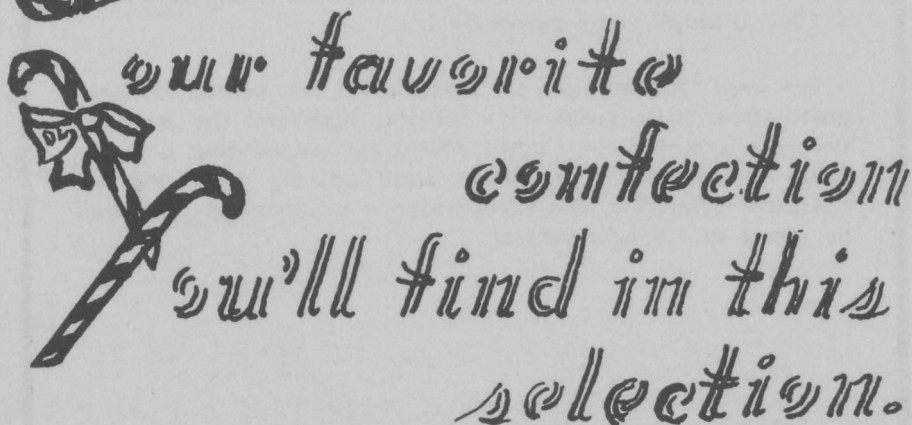 Your favorite
confection
You'll find in this
selection.